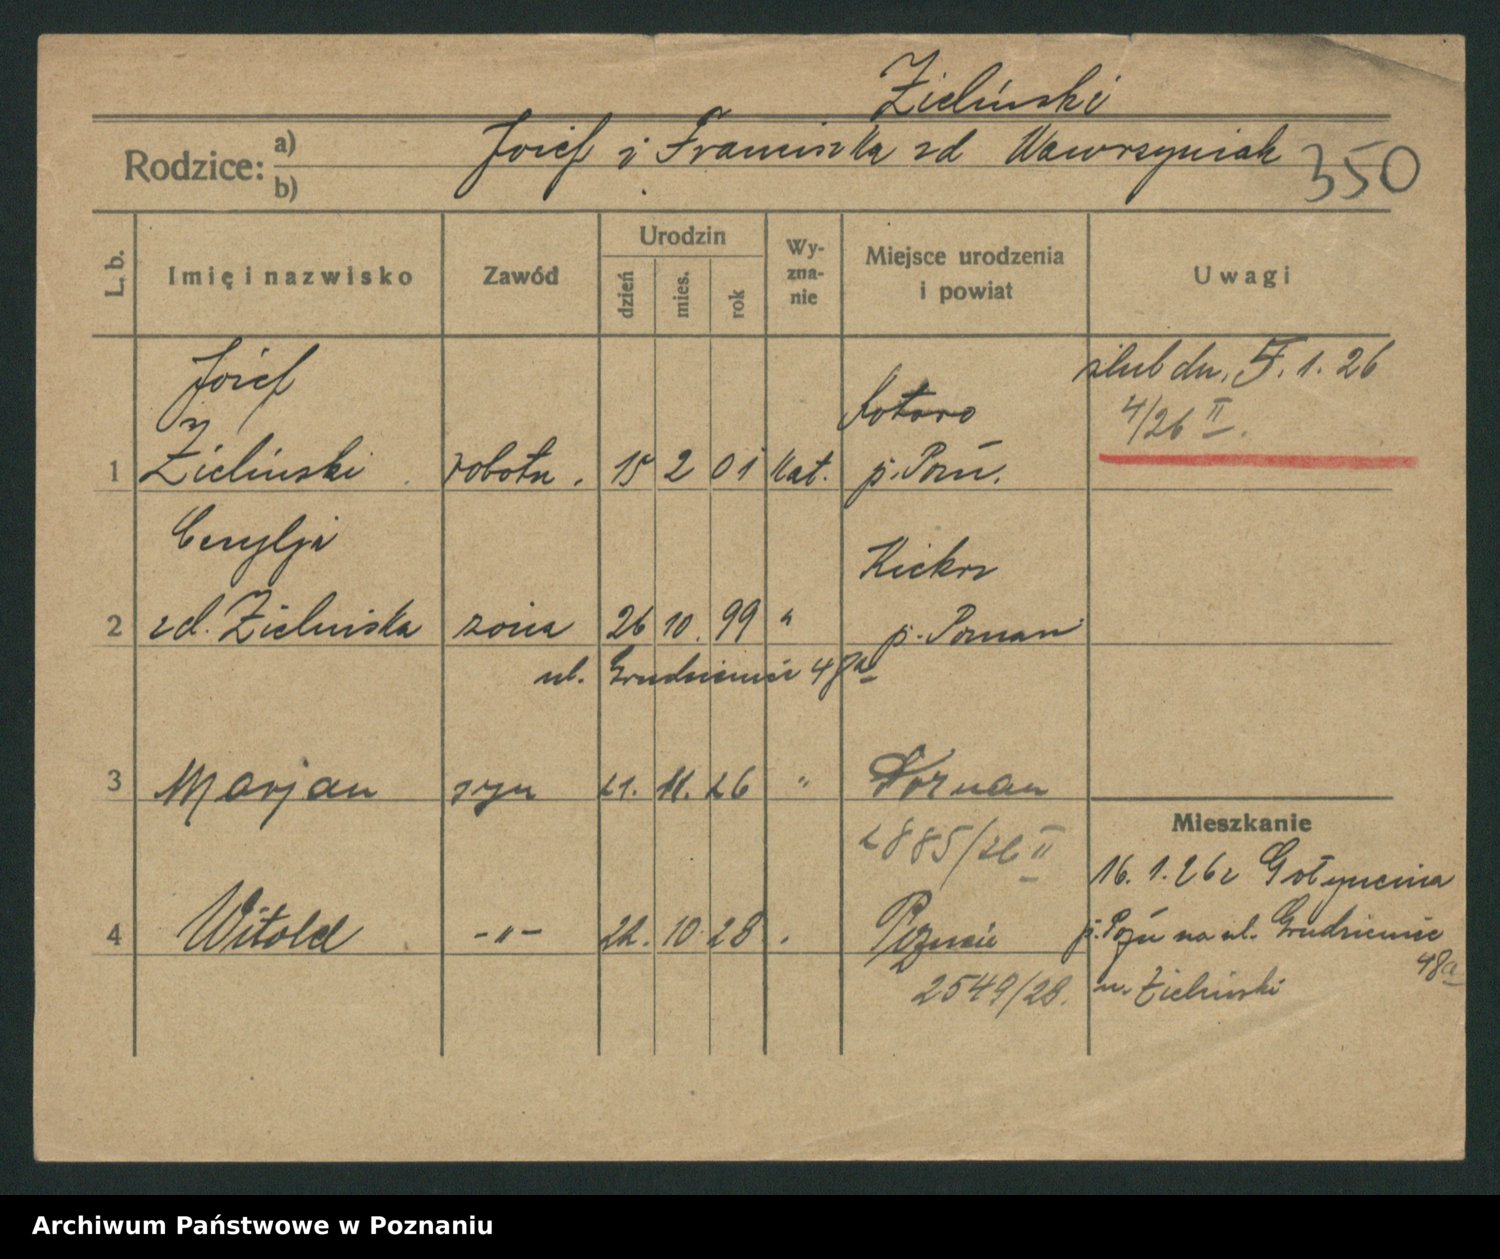 Zieliński
Rodzice: a) Józef i Franciszka zd Wawrzyniak
b)
350
L. b. Imię i nazwisko Zawód Urodzin dzień mies. rok Wyznanie Miejsce urodzenia i powiat Uwagi
Józef
Zieliński
1 robotn. 15 2 01 kat. p. Pozń.
ślub dn. 5. 1. 26
4/26 II.
2 zd. Zielińska żona 26 10. 99 " Kiekrz
p. Poznań
ul. Grudzieniec 48a
3 Marjan syn 21. 11. 26 " Poznań
2885/26 II
4 Witold -"- 22. 10 28 .
2549/28.
Mieszkanie
16. 1. 26 z
p. Pozń na ul. Grudzieniec
48a
u. Zieliński
Archiwum Państwowe w Poznaniu